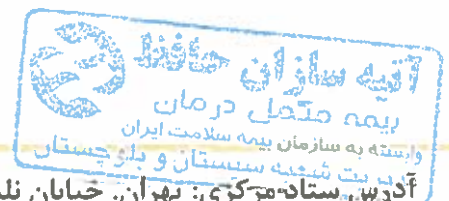 آتیه سازان حافظ
بیمه مکمل درمان
وابسته به سازمان بیمه سلامت ایران
مدیریت شعبه سیستان و بلوچستان
آدرس ستاد مرکزی: تهران، خیابان